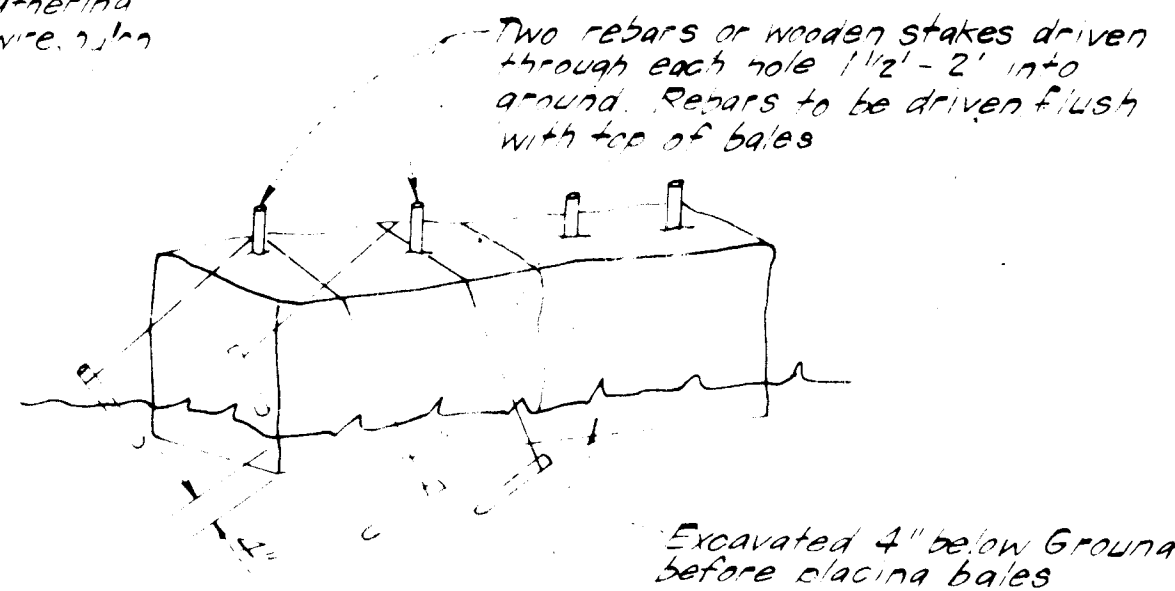 wire, nylon
Two rebars or wooden stakes driven
through each hole 1 1/2' - 2' into
ground. Rebars to be driven flush
with top of bales
4"
Excavated 4" below Ground
before placing bales